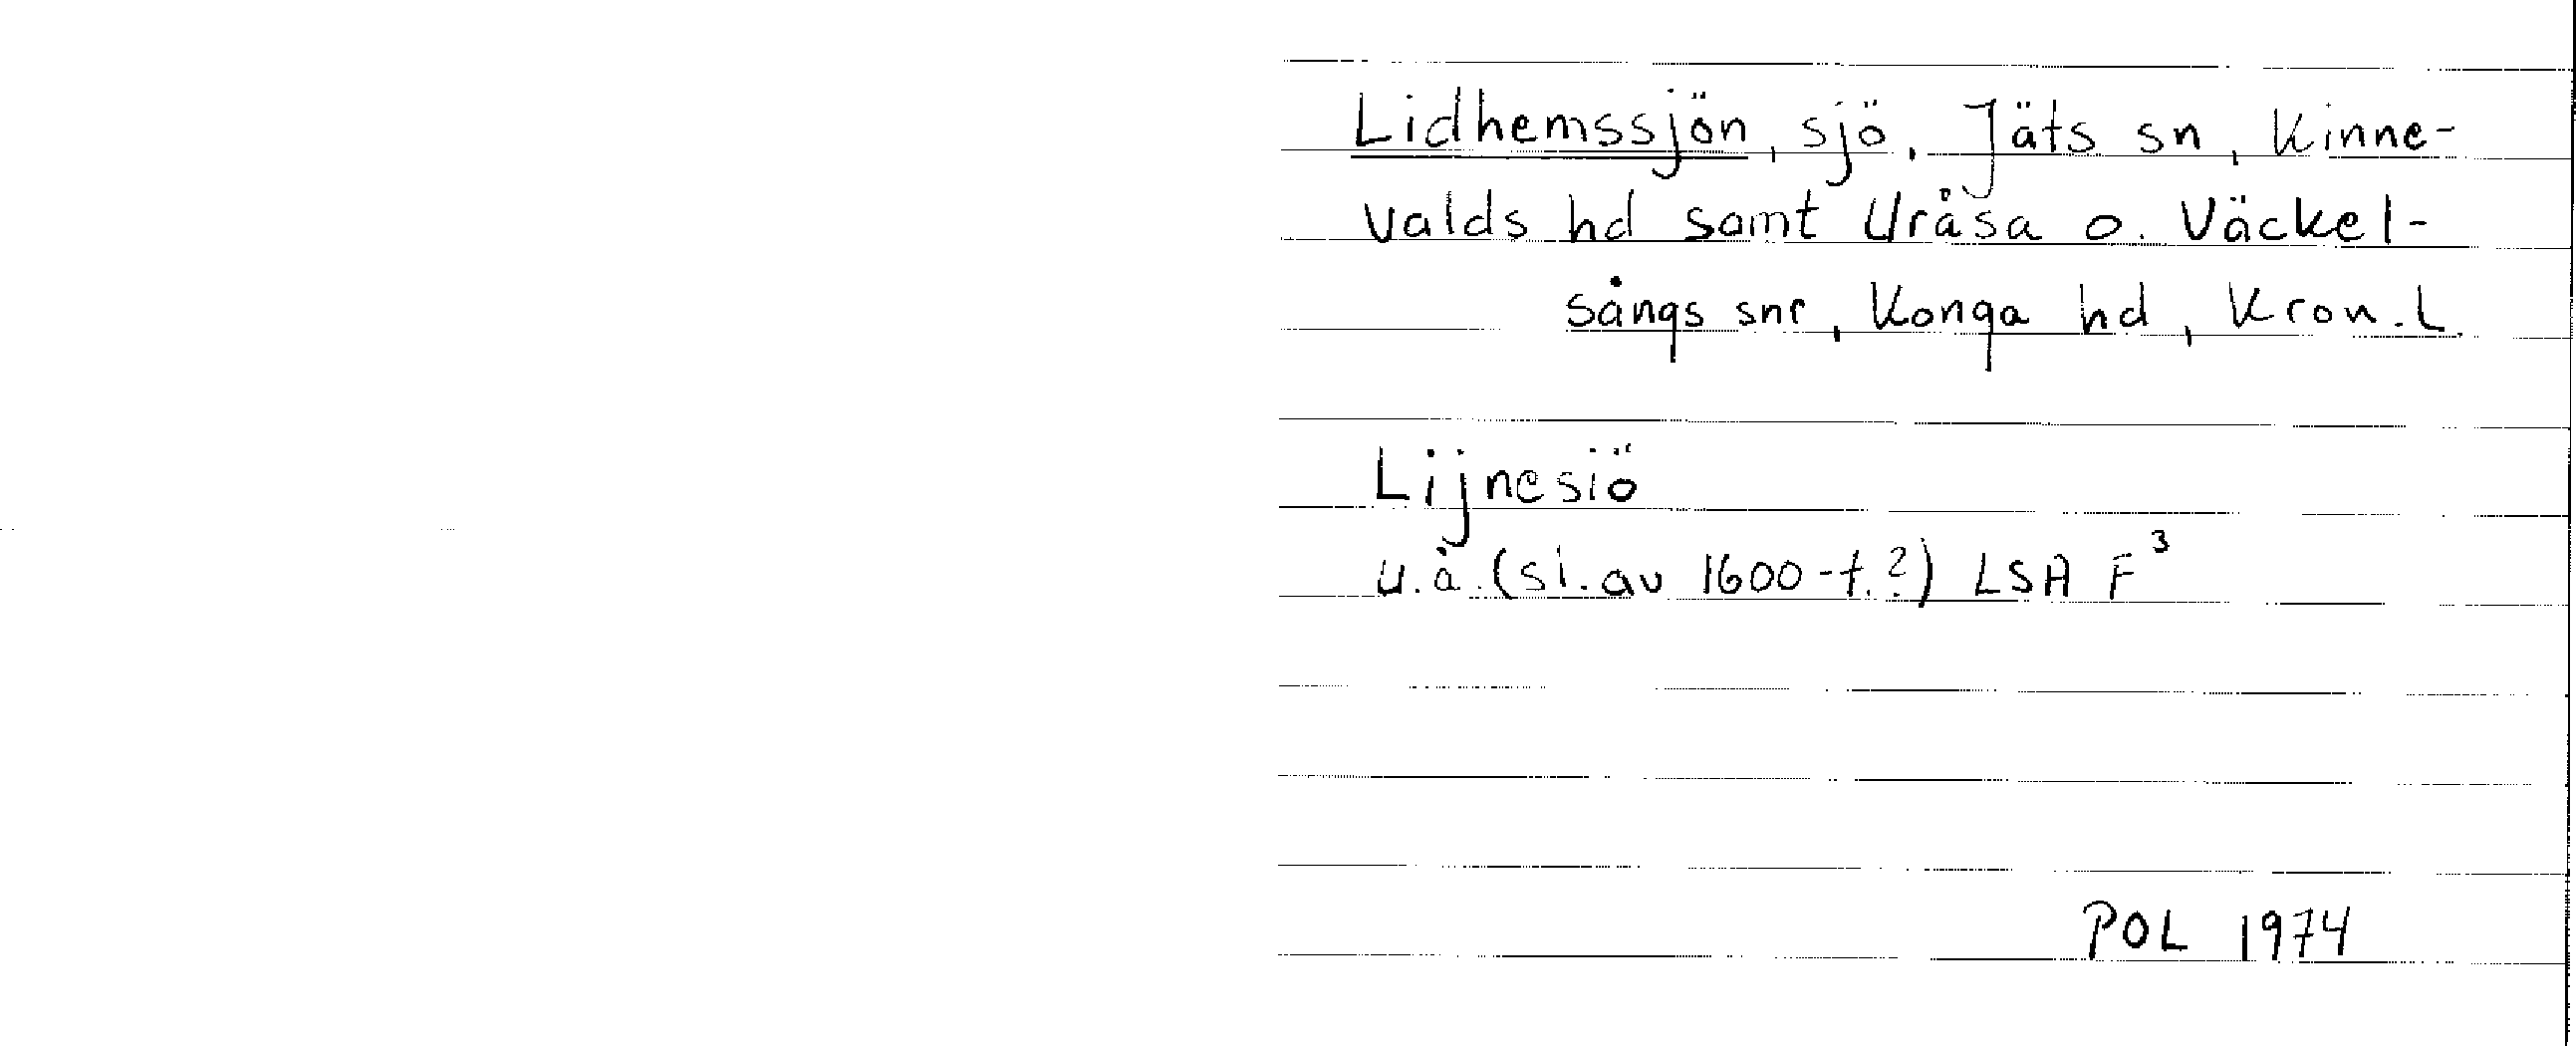 Lidhemssjön, sjö, Jäts sn, Kinne-
valds hd samt Uråsa o. Väckel-
sångs snr, Konga hd, Kron. L.
Lijnesiö
u.å. (sl. av 1600-t.?) LSA F³
POL 1974